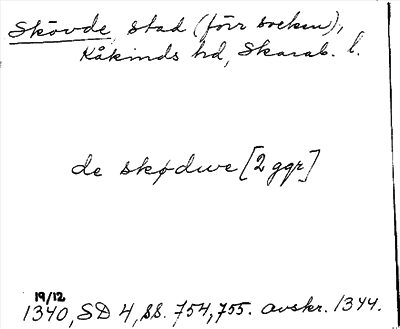 Skövde, stad (förr socken),
Kåkinds hd, Skarab. l.
de skødwe [2 ggr]
19/12
1340, SD 4, ss. 754, 755. avskr. 1344.